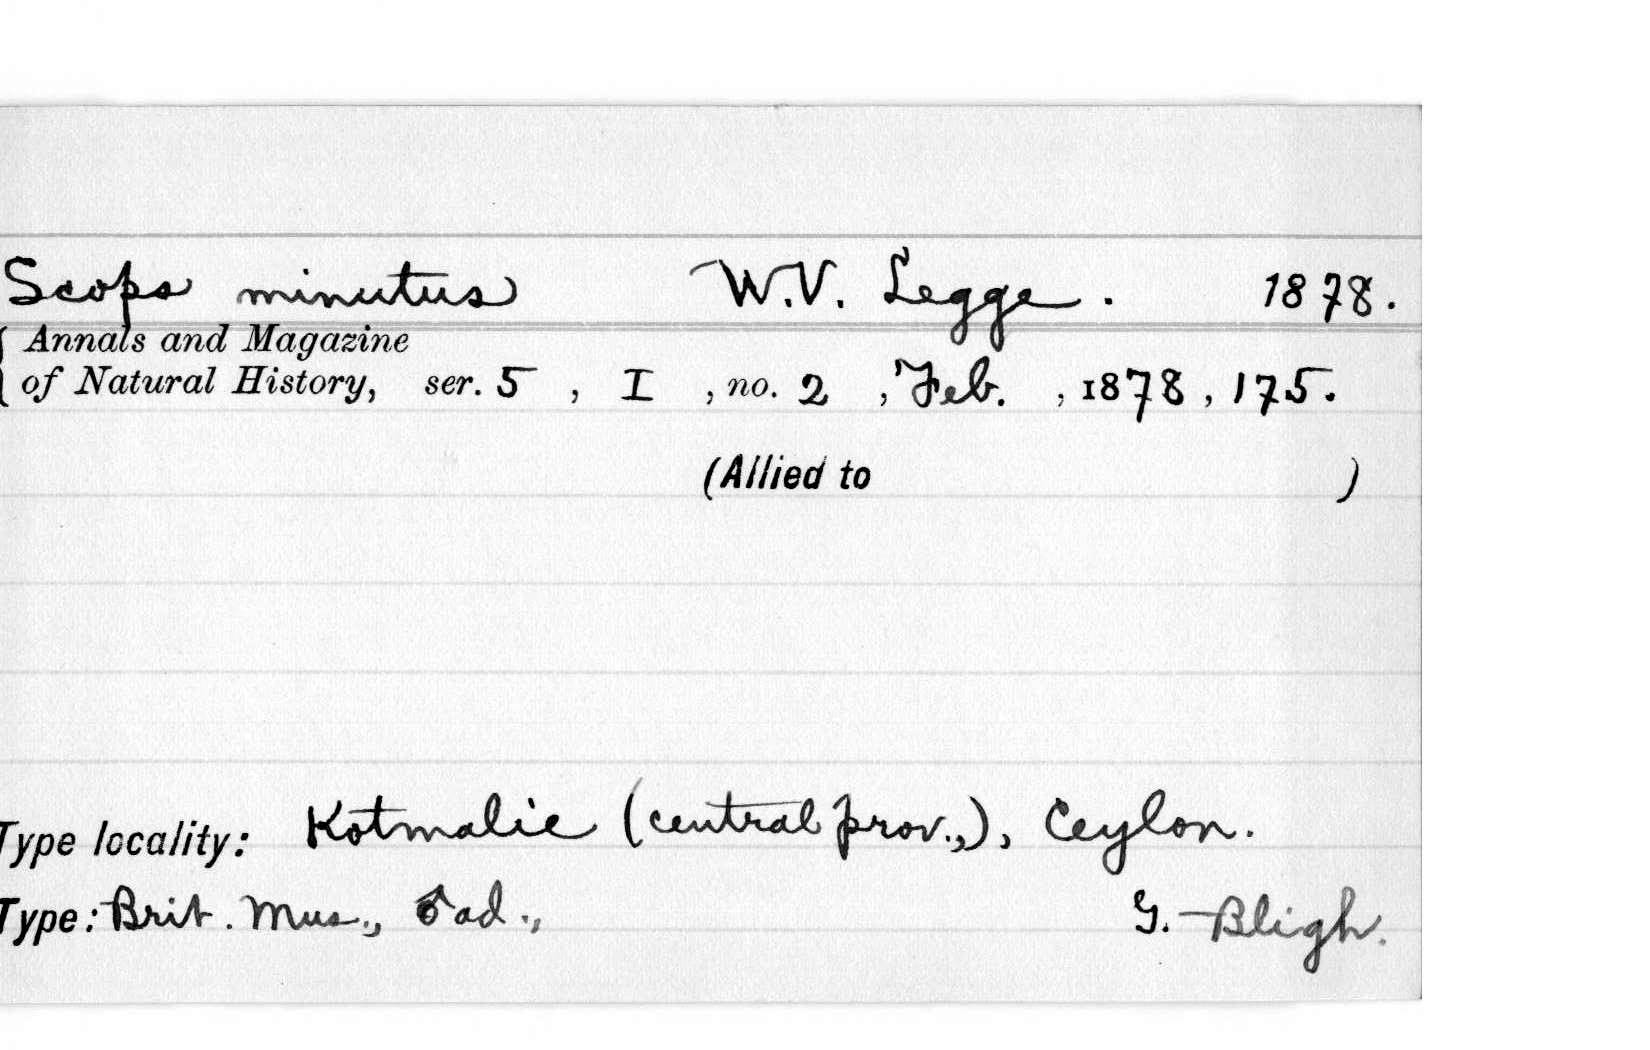 Scops minutus W.V. Legge. 1878.
Annals and Magazine
of Natural History, ser. 5, I, no. 2, Feb., 1878, 175.
(Allied to )
Type locality: Kotmalie (central prov.,), Ceylon.
Type: Brit. Mus., ♂ ad., G. Bligh.